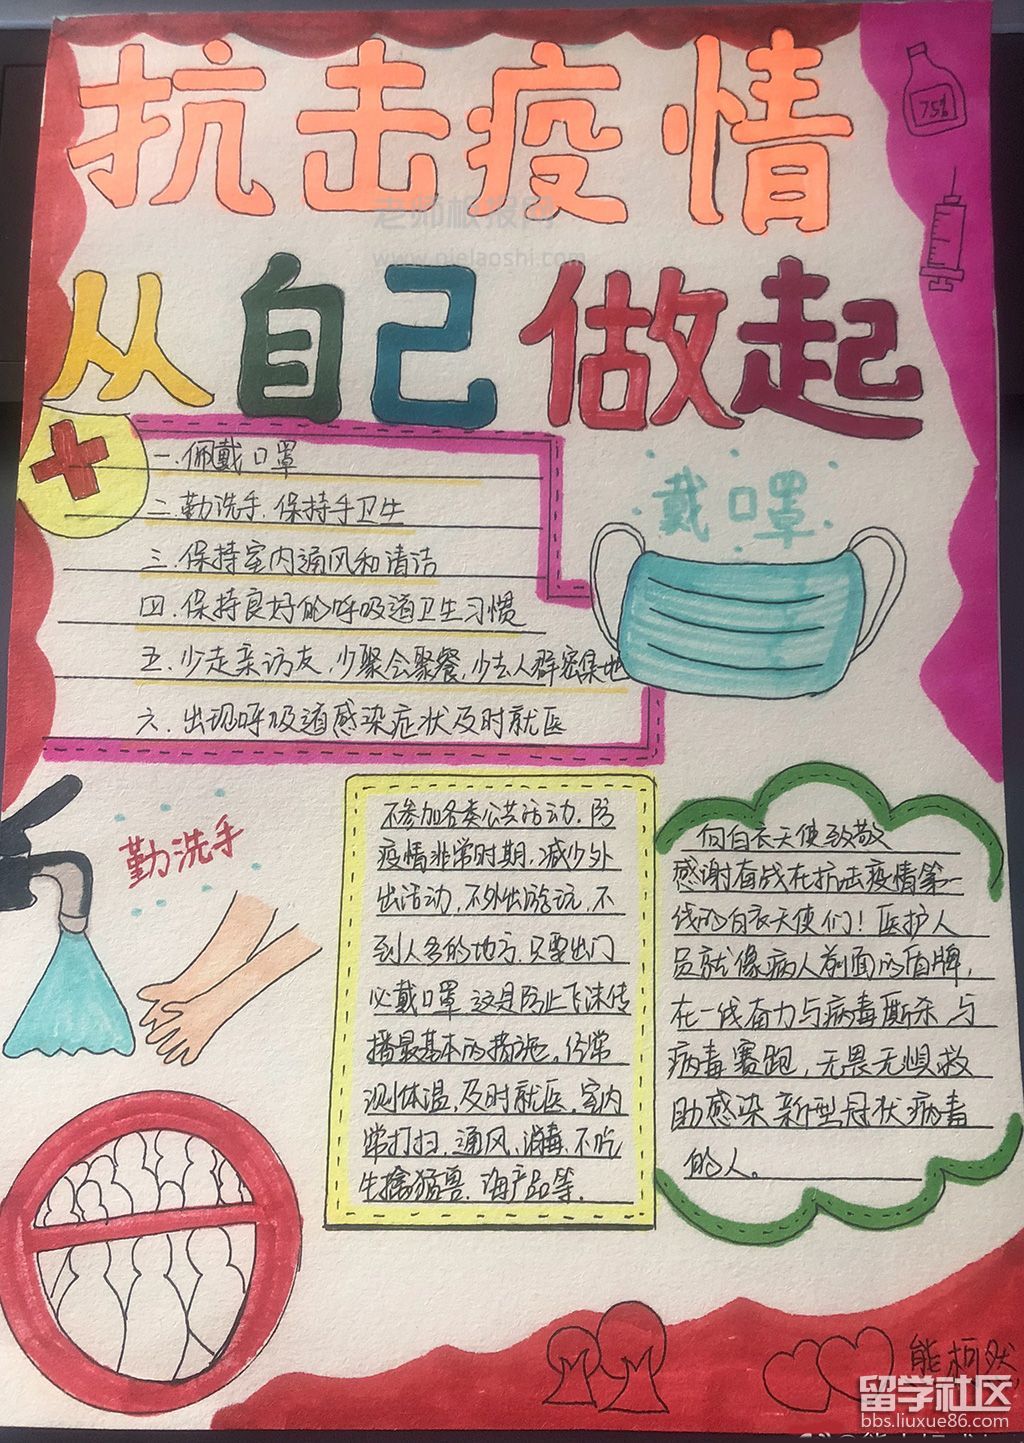 抗击疫情
从自己做起
75%
老师板报网
一.佩戴口罩
二.勤洗手.保持手卫生
三.保持室内通风和清洁
四.保持良好的呼吸道卫生习惯
五.少走亲访友,少聚会聚餐,少去人群密集地
六.出现呼吸道感染症状及时就医
戴口罩
勤洗手
不参加各类公共活动.防
疫情非常时期.减少外
出活动.不外出游玩,不
到人多的地方.只要出门
必戴口罩.这是防止飞沫传
播最基本的措施。
测体温,及时就医.室内
常打扫.通风、消毒.不吃
生擒猛兽.海产品等.
向白衣天使致敬
感谢奋战在抗击疫情第一
线的白衣天使们!医护人
员就像病人前面的盾牌,
在一线奋力与病毒厮杀与
病毒赛跑,无畏无惧救
助感染新型冠状病毒
的人。
留学社区
bbs.liuxue86.com